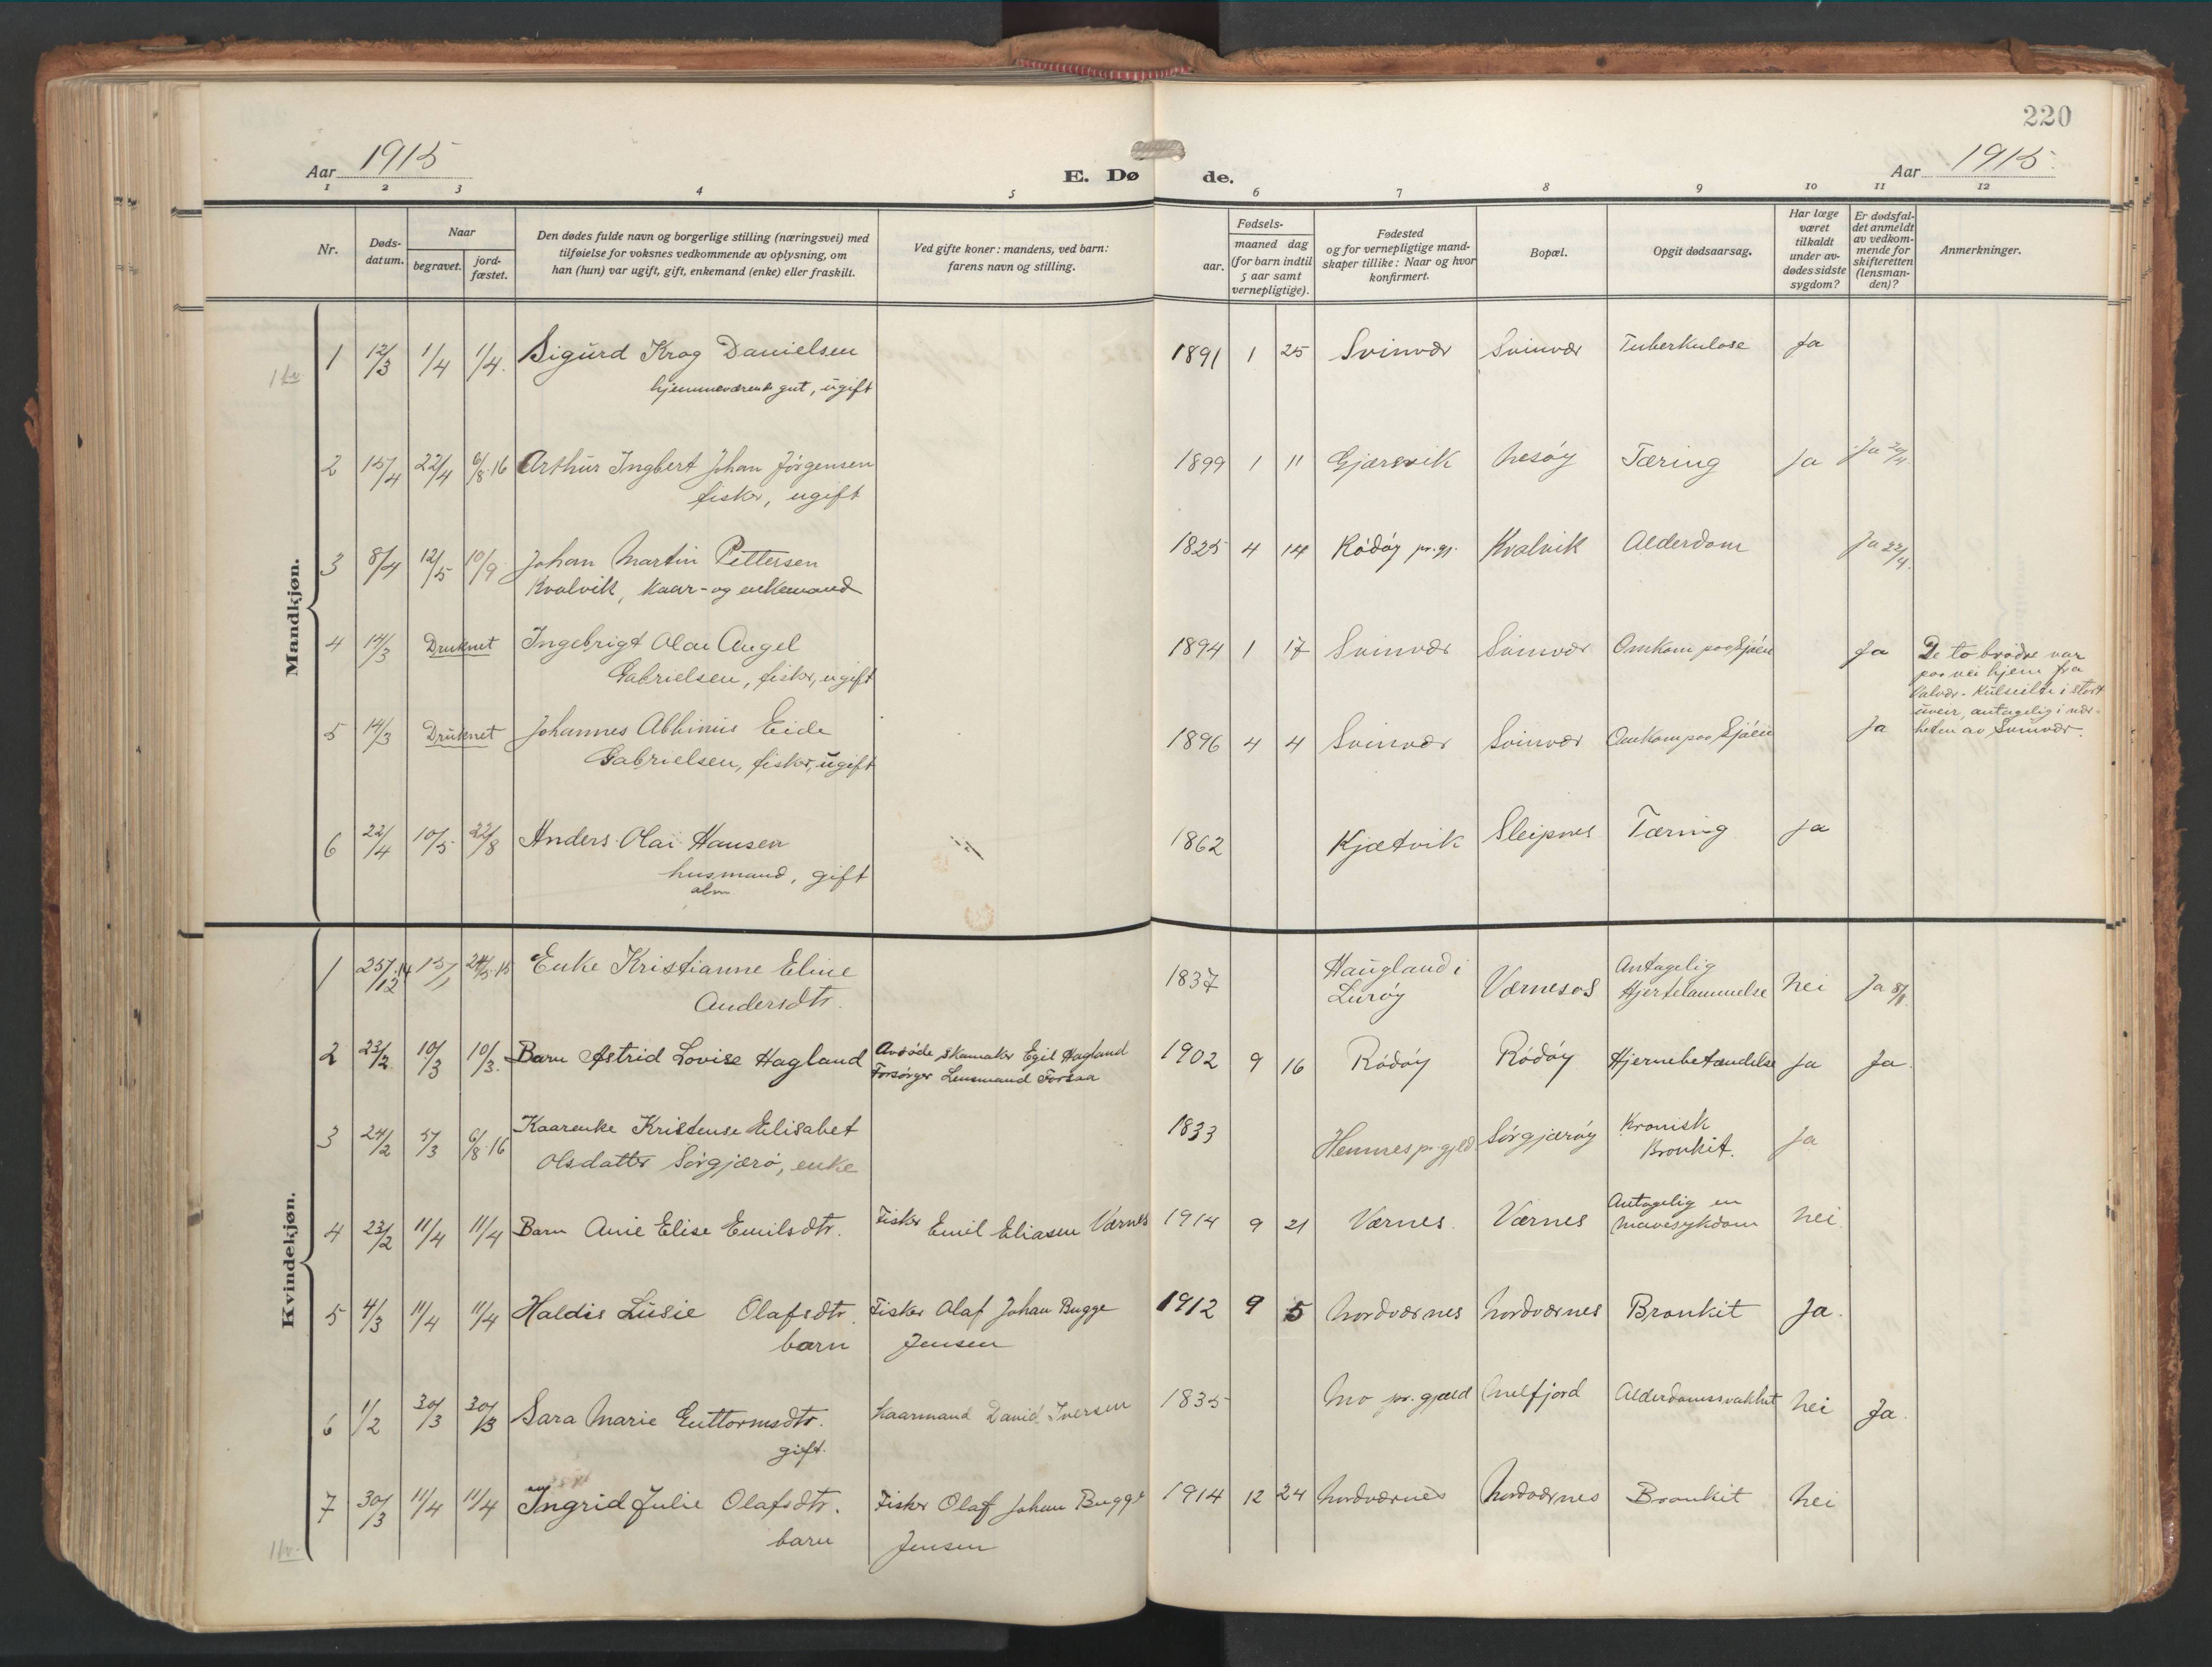 220
Aar 1915
E. Dø de.
Aar 1915.
1 2 3 4 5 6 7 8 9 10 11 12
Nr.
Døds-datum.
Naar
begravet.
jord-fæstet.
Den dødes fulde navn og borgerlige stilling (næringsvei) med
tilføielse for voksnes vedkommende av oplysning, om
han (hun) var ugift, gift, enkemand (enke) eller fraskilt.
Ved gifte koner: mandens, ved barn:
farens navn og stilling.
Fødsels-
aar.
maaned dag
(for barn indtil
5 aar samt
vernepligtige).
Fødested
og for vernepligtige mand-
skaper tillike: Naar og hvor
konfirmert.
Bopæl.
Opgit dødsaarsag.
Har læge
været
tilkaldt
under av-
dødes sidste
sygdom?
Er dødsfal-
det anmeldt
av vedkom-
mende for
skifteretten
(lensman-
den)?
Anmerkninger.
Mandkjøn.
1 12/3 1/4 1/4. Sigurd Krog Danielsen 1891 1 25 Svinvær Svinvær Tuberkulose Ja
hjemmeværende gut, ugift
2 15/4 22/4 6/8.16 Arthur Ingbert Johan Jørgensen 1899 1 11 Gjærsvik Nesøy Tæring Ja Ja 20/4
fisker, ugift
3 8/4 12/5 10/9 Johan Martin Pettersen 1825 4 14 Rødøy pr.gj. Kvalvik Alderdom Ja 22/4.
Kvalvik, Kaar- og enkemand
4 14/3 Druknet Ingebrigt Olai Angel 1894 1 17 Svinvær Svinvær Omkom paa Sjøen Ja
Gabrielsen, fisker, ugift
De to brødre var
paa vei hjem fra
Valvær. Kulseilte i stort
uveir, antagelig i nær-
heten av Svinvær.
5 14/3 Druknet Johannes Albinius Eide 1896 4 4 Svinvær Svinvær Omkom paa Sjøen Ja
Gabrielsen, fisker, ugift
6 22/4 10/5 22/8 Anders Olai Hansen 1862 Kjætvik Sleipnes Tæring Ja
husmand, gift
alm.
Kvindekjøn.
1 25/12.14 15/1 24/5.15 Enke Kristianne Eline 1837 Haugland i Lurøy Værnesos Antagelig Hjertelammelse Nei Ja 8/1.
Andersdtr.
2 23/2 10/3 10/3. Barn Astrid Lovise Hagland Avdøde skomaker Egil Hagland 1902 9 16 Rødøy Rødøy Hjernebetændelse Ja Ja.
Forsørger Lensmand Forsaa
3 24/2 5/3 6/8.16 Kaarenke Kristense Elisabet 1833 Hemnes pr.gjeld Sørgjærøy Kronisk Bronkit. Ja
Olsdatter Sørgjærø, enke
4 23/2 11/4 11/4 Barn Anie Elise Emilsdtr. Fisker Emil Eliasen Værnes 1914 9 21 Værnes. Værnes Antagelig en mavesykdom Nei.
5 4/3 11/4 11/4 Haldis Lusie Olafsdtr. Fisker Olaf Johan Bugge 1912 9 5 Nordværnes Nordværnes Bronkit Ja.
barn Jensen
6 1/2 30/3 30/3 Sara Marie Guttormsdtr. Kaarmand David Iversen 1835 Mo pr. gjæld Melfjord Alderdomssvakhet Nei Ja.
gift.
7 30/3 11/4 11/4 Ingrid Julie Olafsdtr. Fisker Olaf Johan Bugge 1914 12 24 Nordværnes Nordværnes Bronkit Nei
barn Jensen